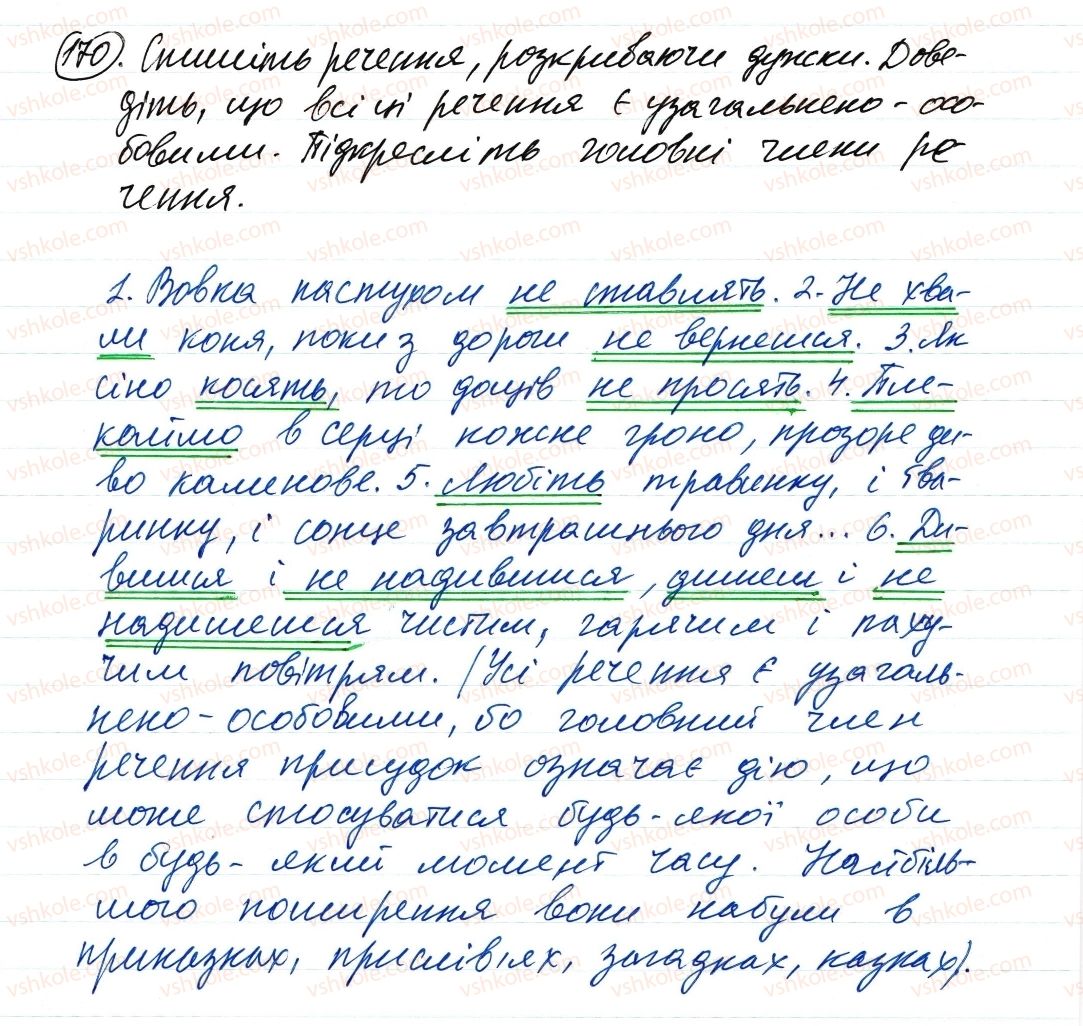 170. Спишіть речення, розкриваючи дужки. Дове-
діть, що всі ці речення є узагальнено-осо-
бовими. Підкресліть головні члени ре-
чення.
1. Вовка пастухом не ставлять. 2. Не хва-
ли коня, поки з дороги не вернешся. 3. Як
сіно косять, то дощів не просять. 4. Пле-
каймо в серці кожне гроно, прозоре ди-
во калинове. 5. Любіть травинку, і тва-
ринку, і сонце завтрашнього дня... 6. Ди-
вишся і не надивишися, дишеш і не
надишешся чистим, гарячим і паху-
чим повітрям. (Усі речення є узагаль-
нено-особовими, бо головний член
речення присудок означає дію, що
може стосуватися будь-якої особи
в будь-який момент часу. Найбіль-
шого поширення вони набули в
приказках, прислів'ях, загадках, казках).